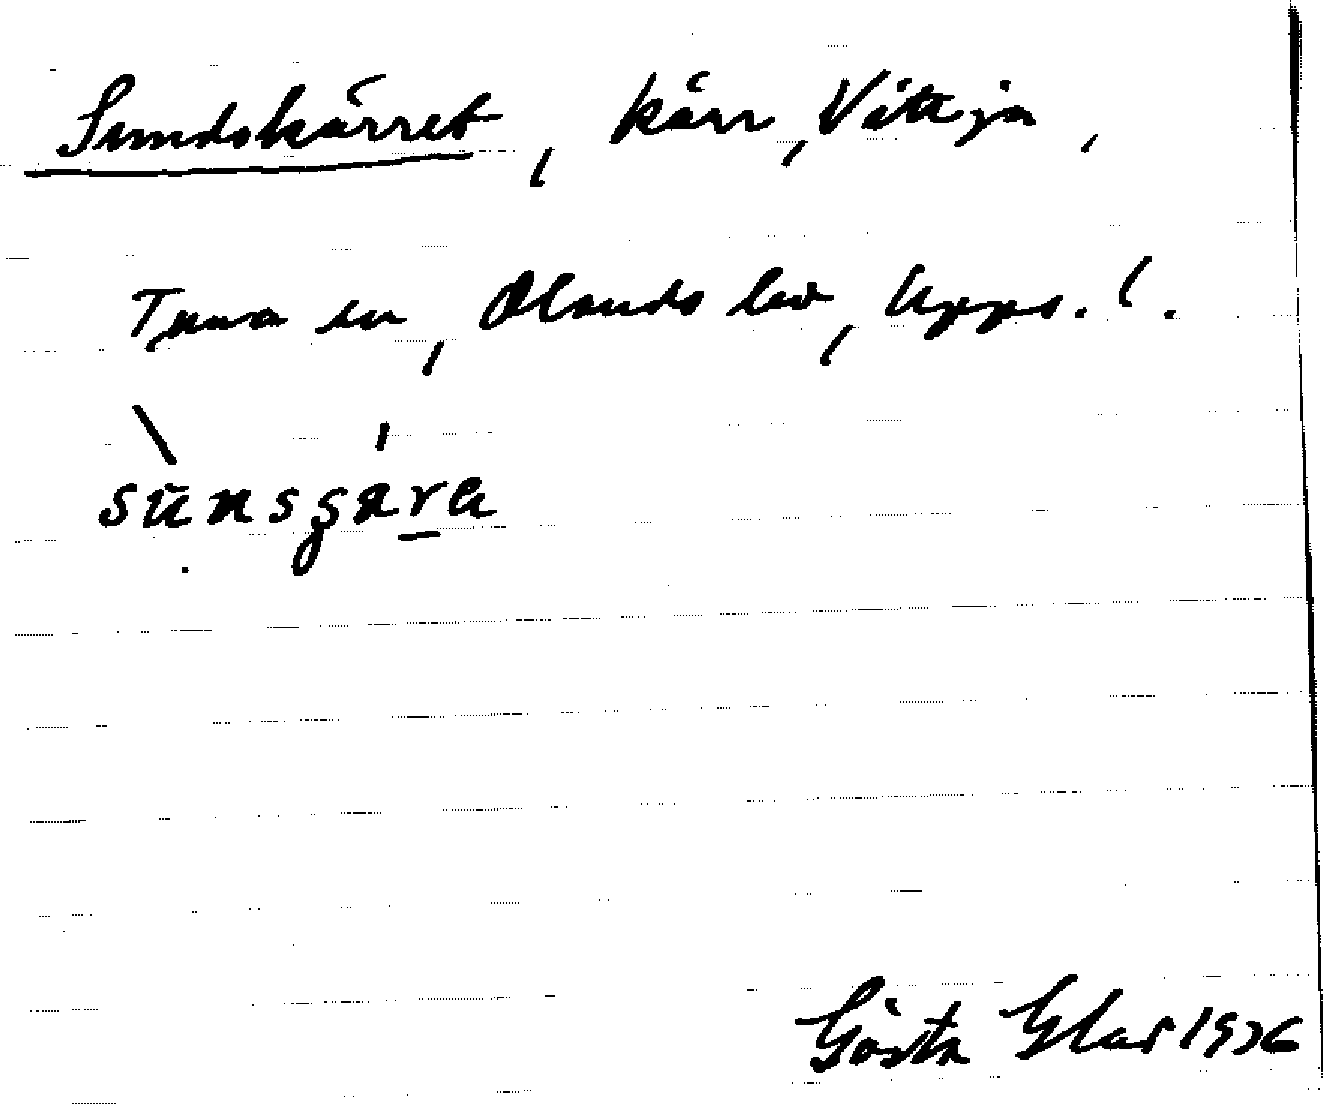 Sundskärret, kärr, Vittja,
Tuna sn, Olands hd, Upps. l.
Gösta Elas 1936